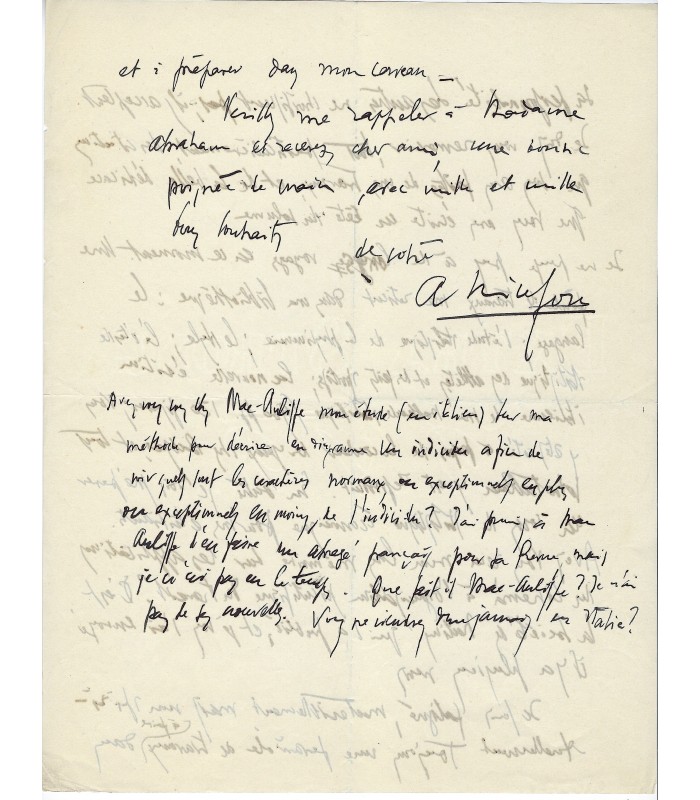 et à préparer dans mon cerveau —
Veuillez me rappeler à Madame
Abraham et recevez, cher ami, une bonne
poignée de main, avec mille et mille
bons souhaits
de votre
A. Niceforo
Avez vous vu chez Mac-Auliffe mon étude (en italien) sur ma
méthode pour décrire en diagramme un individu afin de
voir quels sont les caractères normaux ou exceptionnels en plus
ou exceptionnels en moins, de l'individu? J'ai promis à Mac
Auliffe d'en faire un abrégé français pour sa Revue mais
je n'ai pas eu le temps. Que fait il Mac-Auliffe? Je n'ai
pas de ses nouvelles. Vous ne viendrez donc jamais en Italie?